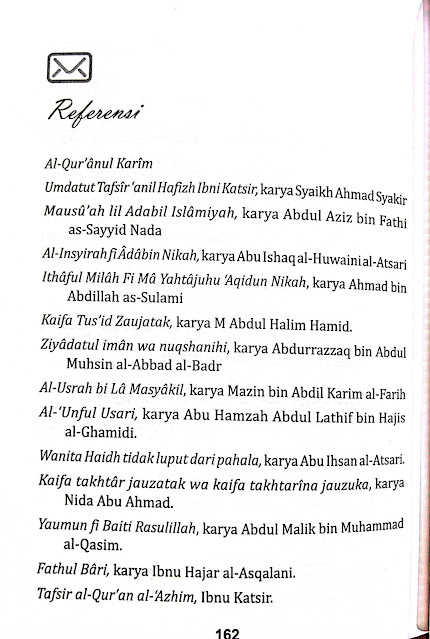 Referensi
Al-Qur'ânul Karîm
Umdatut Tafsîr 'anil Hafizh Ibni Katsir, karya Syaikh Ahmad Syakir
Mausû'ah lil Adabil Islâmiyah, karya Abdul Aziz bin Fathi
as-Sayyid Nada
Al-Insyirah fi Âdâbin Nikah, karya Abu Ishaq al-Huwaini al-Atsari
Ithâful Milâh Fi Mâ Yahtâjuhu 'Aqidun Nikah, karya Ahmad bin
Abdillah as-Sulami
Kaifa Tus'id Zaujatak, karya M Abdul Halim Hamid.
Ziyâdatul imân wa nuqshanihi, karya Abdurrazzaq bin Abdul
Muhsin al-Abbad al-Badr
Al-Usrah bi Lâ Masyâkil, karya Mazin bin Abdil Karim al-Farih
Al-'Unful Usari, karya Abu Hamzah Abdul Lathif bin Hajis
al-Ghamidi.
Wanita Haidh tidak luput dari pahala, karya Abu Ihsan al-Atsari.
Kaifa takhtâr jauzatak wa kaifa takhtarîna jauzuka, karya
Nida Abu Ahmad.
Yaumun fi Baiti Rasulillah, karya Abdul Malik bin Muhammad
al-Qasim.
Fathul Bâri, karya Ibnu Hajar al-Asqalani.
Tafsir al-Qur'an al-'Azhim, Ibnu Katsir.
162